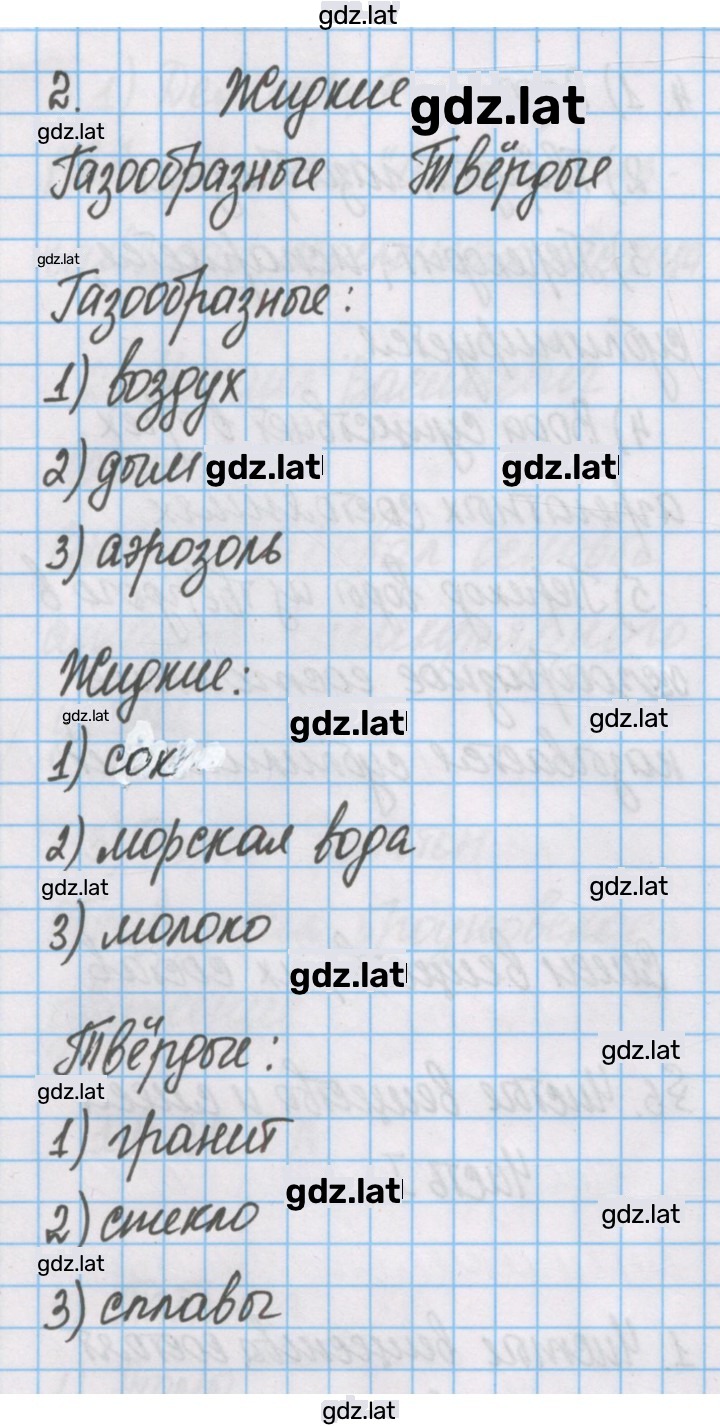 gdz.lat
2. Жидкие
gdz.lat
gdz.lat
Газообразные Твёрдые
gdz.lat
Газообразные:
1) воздух
2) дым
gdz.lat
gdz.lat
3) аэрозоль
Жидкие:
gdz.lat
gdz.lat
gdz.lat
1) сок
2) морская вода
gdz.lat
gdz.lat
3) молоко
gdz.lat
Твёрдые:
gdz.lat
gdz.lat
1) гранит
gdz.lat
2) стекло
gdz.lat
gdz.lat
3) сплавы
gdz.lat